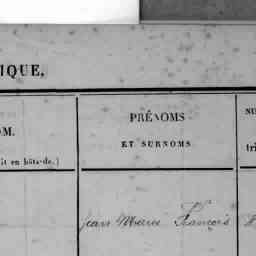 IQUE,
OM.
PRÉNOMS
NU
ET SURNOMS
tri
it en bâtarde.)
Jean Marie François